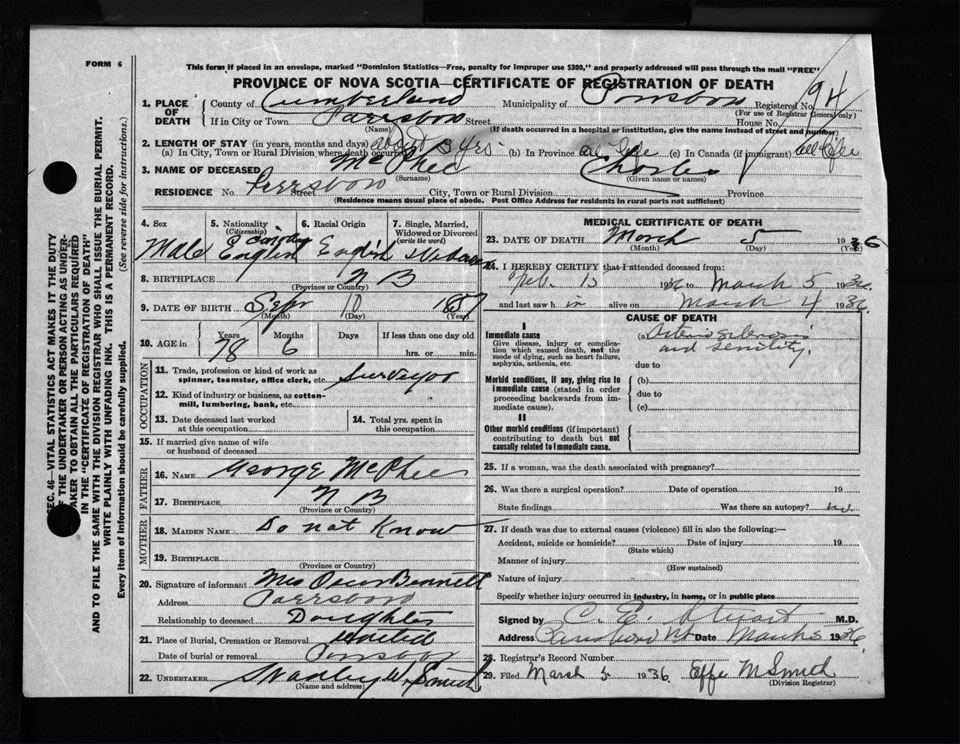 FORM 6
This form if placed in an envelope, marked "Dominion Statistics—Free, penalty for improper use $300," and properly addressed will pass through the mail "FREE"
PROVINCE OF NOVA SCOTIA—CERTIFICATE OF REGISTRATION OF DEATH
1. PLACE OF DEATH
County of Cumberland Municipality of Parrsboro Registered No. 94
(For use of Registrar General only)
If in City or Town Parrsboro Street House No.
(Name) (If death occurred in a hospital or institution, give the name instead of street and number)
2. LENGTH OF STAY (in years, months and days)
(a) In City, Town or Rural Division where death occurred about 3 yrs (b) In Province all life (c) In Canada (if immigrant) all life
3. NAME OF DECEASED McPhee Charles
(Surname) (Given name or names)
RESIDENCE No. Parrsboro Street City, Town or Rural Division Province
(Residence means usual place of abode. Post Office Address for residents in rural parts not sufficient)
4. Sex Male
5. Nationality (Citizenship) English
6. Racial Origin English
7. Single, Married, Widowed or Divorced (write the word)
8. BIRTHPLACE N B
(Province or Country)
9. DATE OF BIRTH Sept 10 1857
(Month) (Day) (Year)
10. AGE in Years 78 Months 6 Days If less than one day old hrs. or min.
OCCUPATION
11. Trade, profession or kind of work as spinner, teamster, office clerk, etc. Surveyor
12. Kind of industry or business, as cotton-mill, lumbering, bank, etc.
13. Date deceased last worked at this occupation
14. Total yrs. spent in this occupation
15. If married give name of wife or husband of deceased
FATHER
16. NAME George McPhee
17. BIRTHPLACE N B
(Province or Country)
MOTHER
18. MAIDEN NAME Do not Know
19. BIRTHPLACE
(Province or Country)
20. Signature of informant Mrs Bennett
Address Parrsboro
Relationship to deceased Daughter
21. Place of Burial, Cremation or Removal
Date of burial or removal Parrsboro
22. UNDERTAKER W. Smith
(Name and address)
MEDICAL CERTIFICATE OF DEATH
23. DATE OF DEATH March 5 1936
(Month) (Day) (Year)
24. I HEREBY CERTIFY that I attended deceased from:
Feb. 13 1936 to March 5 1936
and last saw him alive on March 4 1936.
CAUSE OF DEATH
I
Immediate cause
Give disease, injury or complication which caused death, not the mode of dying, such as heart failure, asphyxia, asthenia, etc.
(a) Arteriosclerosis
and senility.
due to
Morbid conditions, if any, giving rise to immediate cause (stated in order proceeding backwards from immediate cause).
(b)
due to
(c)
II
Other morbid conditions (if important) contributing to death but not causally related to immediate cause.
25. If a woman, was the death associated with pregnancy?
26. Was there a surgical operation? Date of operation 19
State findings Was there an autopsy? no
27. If death was due to external causes (violence) fill in also the following:—
Accident, suicide or homicide? Date of injury 19
(State which)
Manner of injury
(How sustained)
Nature of injury
Specify whether injury occurred in industry, in home, or in public place
Signed by C. E. Stuart M.D.
Address Parrsboro NS Date March 5 1936
28. Registrar's Record Number
29. Filed March 5 1936. Effie M Smith
(Division Registrar)
SEC. 46—VITAL STATISTICS ACT MAKES IT THE DUTY
OF THE UNDERTAKER OR PERSON ACTING AS UNDER-
TAKER TO OBTAIN ALL THE PARTICULARS REQUIRED
IN THE "CERTIFICATE OF REGISTRATION OF DEATH"
AND TO FILE THE SAME WITH THE DIVISION REGISTRAR WHO SHALL ISSUE THE BURIAL PERMIT.
WRITE PLAINLY WITH UNFADING INK. THIS IS A PERMANENT RECORD.
Every item of information should be carefully supplied. (See reverse side for instructions.)